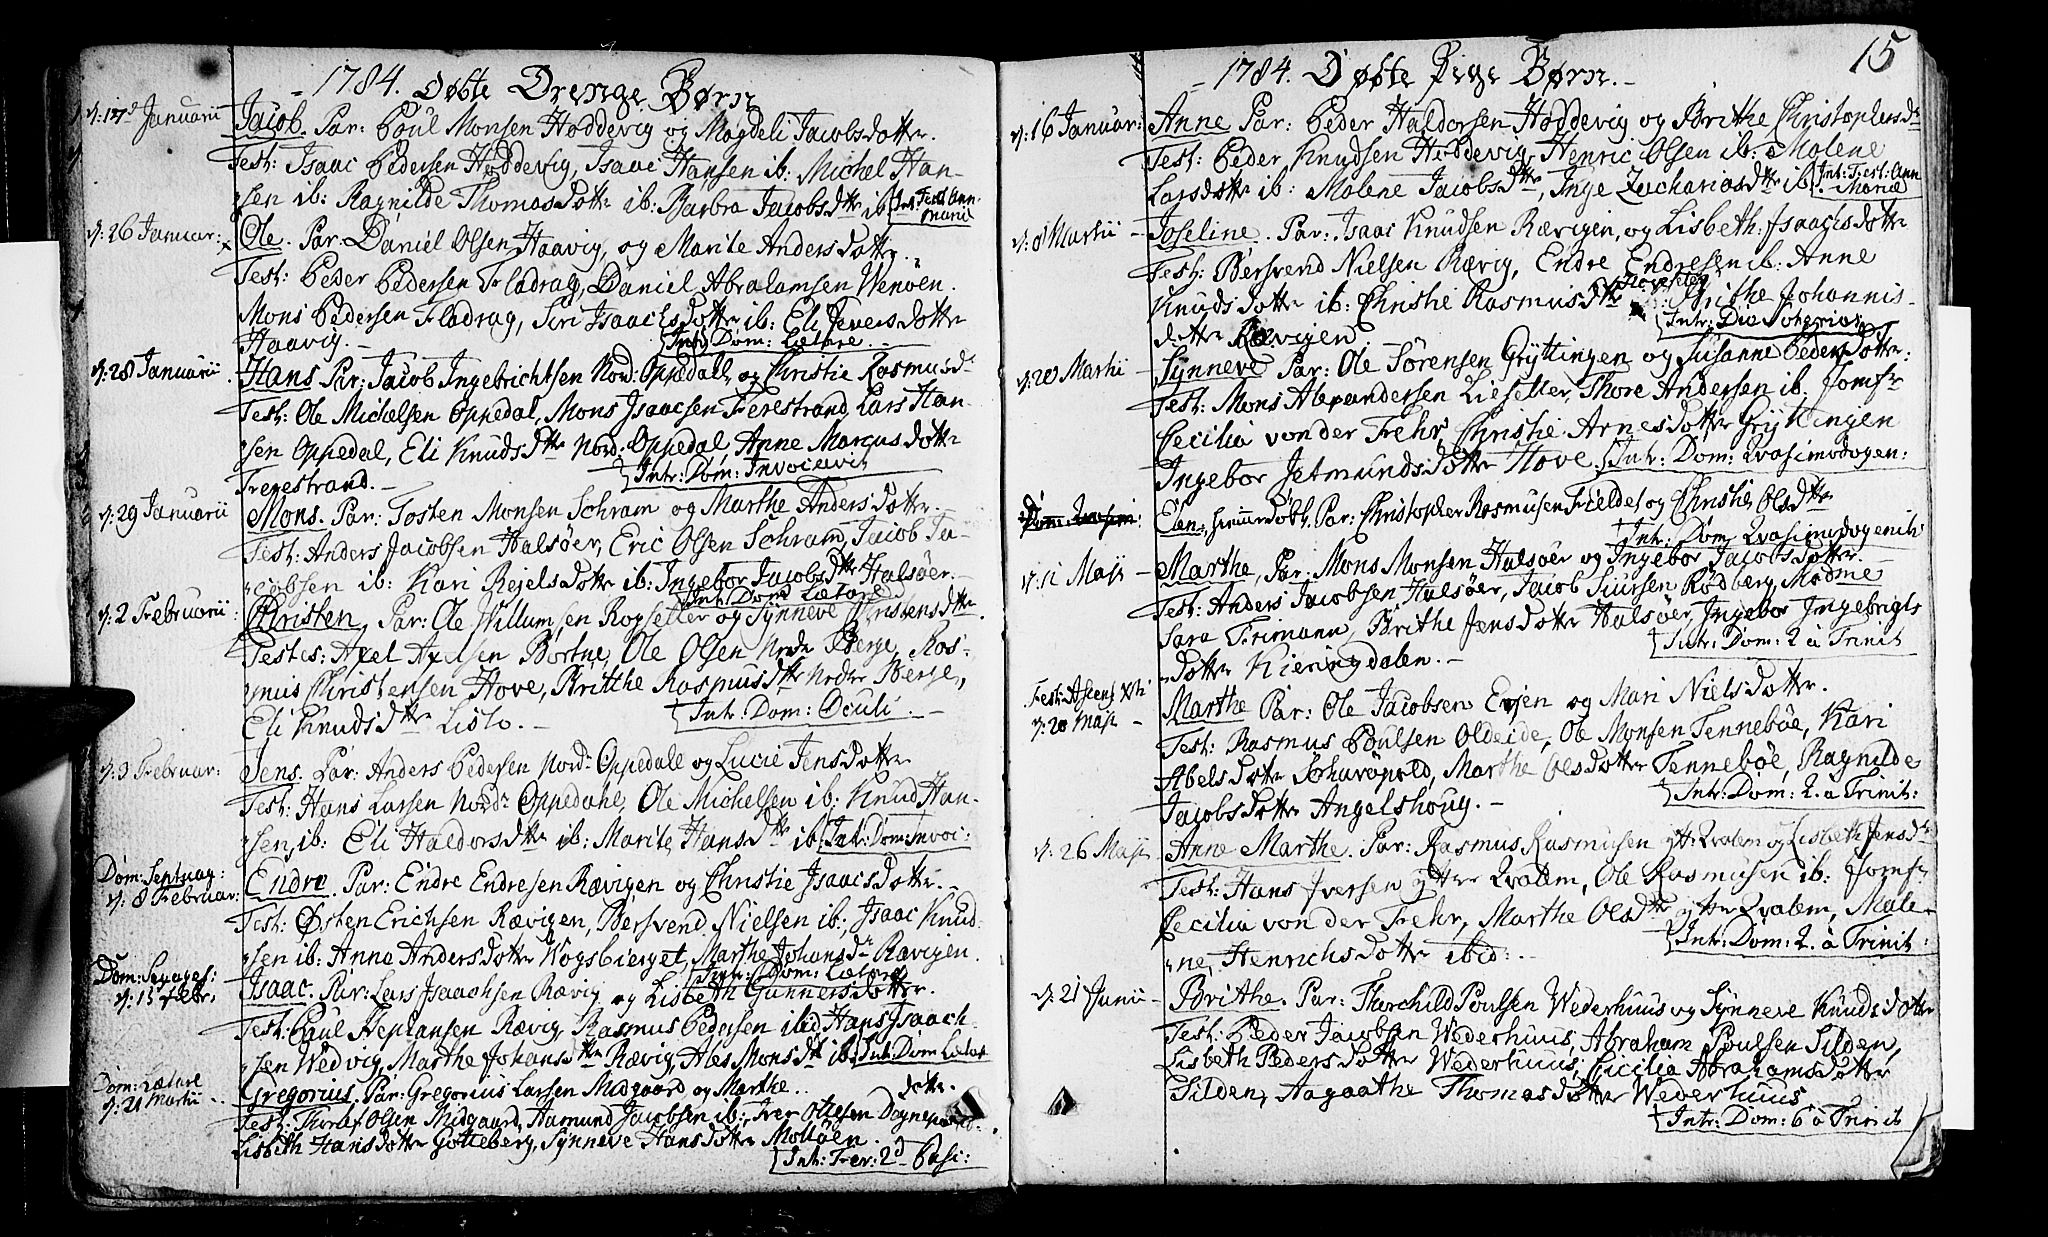 1784. Døbte Drenge Børn
d: 17d Januarii
Jacob. Par: Poul Monsen Høddevig og Magdeli Jacobsdotter.
Test: Isaac Pedersen Høddevig, Isaac Hansen ib: Michel Han-
sen ib: Ragnilde Thomasdotter ib: Barbra Jacobsdttr ib: Int: Fest: Ann:
Mariæ
d: 26 Januar:
Ole. Par: Daniel Olsen Haavig, og Marite Andersdotter.
Test: Peder Pedersen Fladrag, Daniel Abrahamsen Wenøen.
Mons Pedersen Fladrag, Siri Isaachsdotter ib: Eli Iversdotter
Haavig. -
Int: Dom: Lætare.
d: 28 Januarii
Hans Par: Jacob Ingebrichtsen Nord: Oppedall og Christie Rasmusd:
Test: Ole Michelsen Oppedal, Mons Isaacsen Ferestrand, Lars Han-
sen Oppedal, Eli Knudsdttr Nord: Oppedal, Anne Marcusdotter
Ferestrand. -
Int: Dom: Invocavit
d: 29 Januarii
Mons. Par: Tosten Monsen Schram og Marthe Andersdotter.
Test: Anders Jacobsen Halsøer, Eric Olsen Schram, Jacob Ja-
cobsen ib: Kari Rejelsdotter ib: Ingebor Jacobsdttr Halsøer.
Int: Dom: Lætare
d: 2 Februarii
Christen, Par: Ole Willumsen Rogsetter og Synneve Christensdttr.
Testes: Axel Axelsen Bortne, Ole Olsen Nedre Berge, Ras-
mus Christensen Hove, Britthe Rasmusdttr Nedre Berge,
Eli Knudsdttr Listo. -
Int: Dom: Oculi. -
d: 3 Februar:
Jens. Par: Anders Pedersen Nord: Oppedale og Lucie Jensdotter
Test: Hans Larsen Nord: Oppedahl, Ole Michelsen ib: Knud Han-
sen, ib: Eli Haldorsdttr ib: Marite Hansdttr ib: Int: Dom: Invoc:
Dom: Septuag:
d: 8 Februar:
Endre. Par: Endre Endresen Rævigen og Christie Isaacsdotter.
Test: Østen Erichsen Rævigen, Bersvend Nielsen ib: Isaac Knud-
sen ib: Anna Andersdotter Wogsbierget, Marthe Johansdr Rævigen.
Int: Dom: Lætare
Dom: Sexages:
d: 15 Febr,
Isaac. Par: Lars Isaachsen Rævig og Lisbeth Gunnersdotter.
Test: Poul Stephansen Rævig, Rasmus Pedersen ibid Hans Isaach-
sen Wedvig, Marthe Johansdttr Rævig, Ales Monsdtr ib: Int: Dom Lætar
Dom: Lætare
d: 21 Martii
Gregorius, Par: Gregorius Larsen Midgaard og Marthe dotter.
Test: Thorlef Olsen Midgaard, Aamund Jacobsen ib:, Iver Ottesen
Lisbeth Hansdotter Gotteberg, Synneve Hansdotter Moldøen.
Int: Fer: 2d Pasc:
15
1784. Døbte Pige Børn. -
d: 16 Januar:
Anne Par: Peder Haldorsen Høddevig og Brithe Christophersdr
Test: Peder Knudsen Høddevig, Henric Olsen ib: Malene
Larsdotter ib: Malene Jacobsdttr, Inge Zachariasdttr ib: Int: Fest: Ann
Mariæ
d: 8 Martii
Joseline. Par: Isaac Knudsen Rævigen, og Lisbeth Isaachsdotter
Test: Bersvend Nielsen Rævig, Endre Endresen ib: Anne
Knudsdotter ib: Christie Rasmusdttr Brithe Johannis-
dotter Rævigen
Int: Die Joheriar
d: 20 Martii
Synneve Par: Ole Sørensen Gryttingen og Susanne Pedersdotter:
Test: Mons Alexandersen Liesetter, Thore Andersen ib: Jomfr
Cecilia von der Fehr, Christie Arnesdotter Gryttingen
Ingebor Jetmundsdotter Hove.
Int: Dom: Qvasimodogen:
Elen, hiemmedøbt, Par: Christopher Rasmusen Fieldet og Christie Olsdttr
Int: Dom Qvasimodogenit:
d: 11 Maji
Marthe, Par: Mons Monsen Halsøer og Ingebor Jacobsdotter.
Test: Anders Jacobsen Halsøer, Jacob Siursen Rødberg, Madme
Sara Frimann, Brithe Jensdotter Halsøer, Ingebor Ingebrigts
dotter Kieringdalen. -
Int: Dom: 2 à Trinit
Fest: Ascens: Xti
d: 20 Maji -
Marthe Par: Ole Jacobsen Endal og Mari Nielsdotter.
Test: Rasmus Poulsen Oldeide, Ole Monsen Tennebøe, Kari
Abelsdotter Marthe Olsdotter Tennebøe, Ragnilde
Jacobsdotter Angelshoug. -
Int: Dom: 2. à Trinit:
d: 26 Maji
Anne Marthe. Par: Rasmus Rasmusen ytt: Qvalem og Lisbeth Jensdr
Test: Hans Iversen yttre Qvalem, Ole Rasmusen ib: Jomfr
Cecilia von der Fehr, Marthe Olsdttr yttre Qvalem, Male-
ne, Henrichsdotter ibid: -
Int: Dom: 2. à Trinit:
d: 21 Junii -
Brithe. Par: Thorchild Poulsen Wederhuus og Synneve Knudsdotter
Test: Peder Jacobsen Wederhuus, Abraham Poulsen Silden,
Lisbeth Pedersdotter Wederhuus, Cicilia Abrahamsdotter
Silden, Aagaathe Thomasdotter Wederhuus
Int: Dom: 6 à Trinit